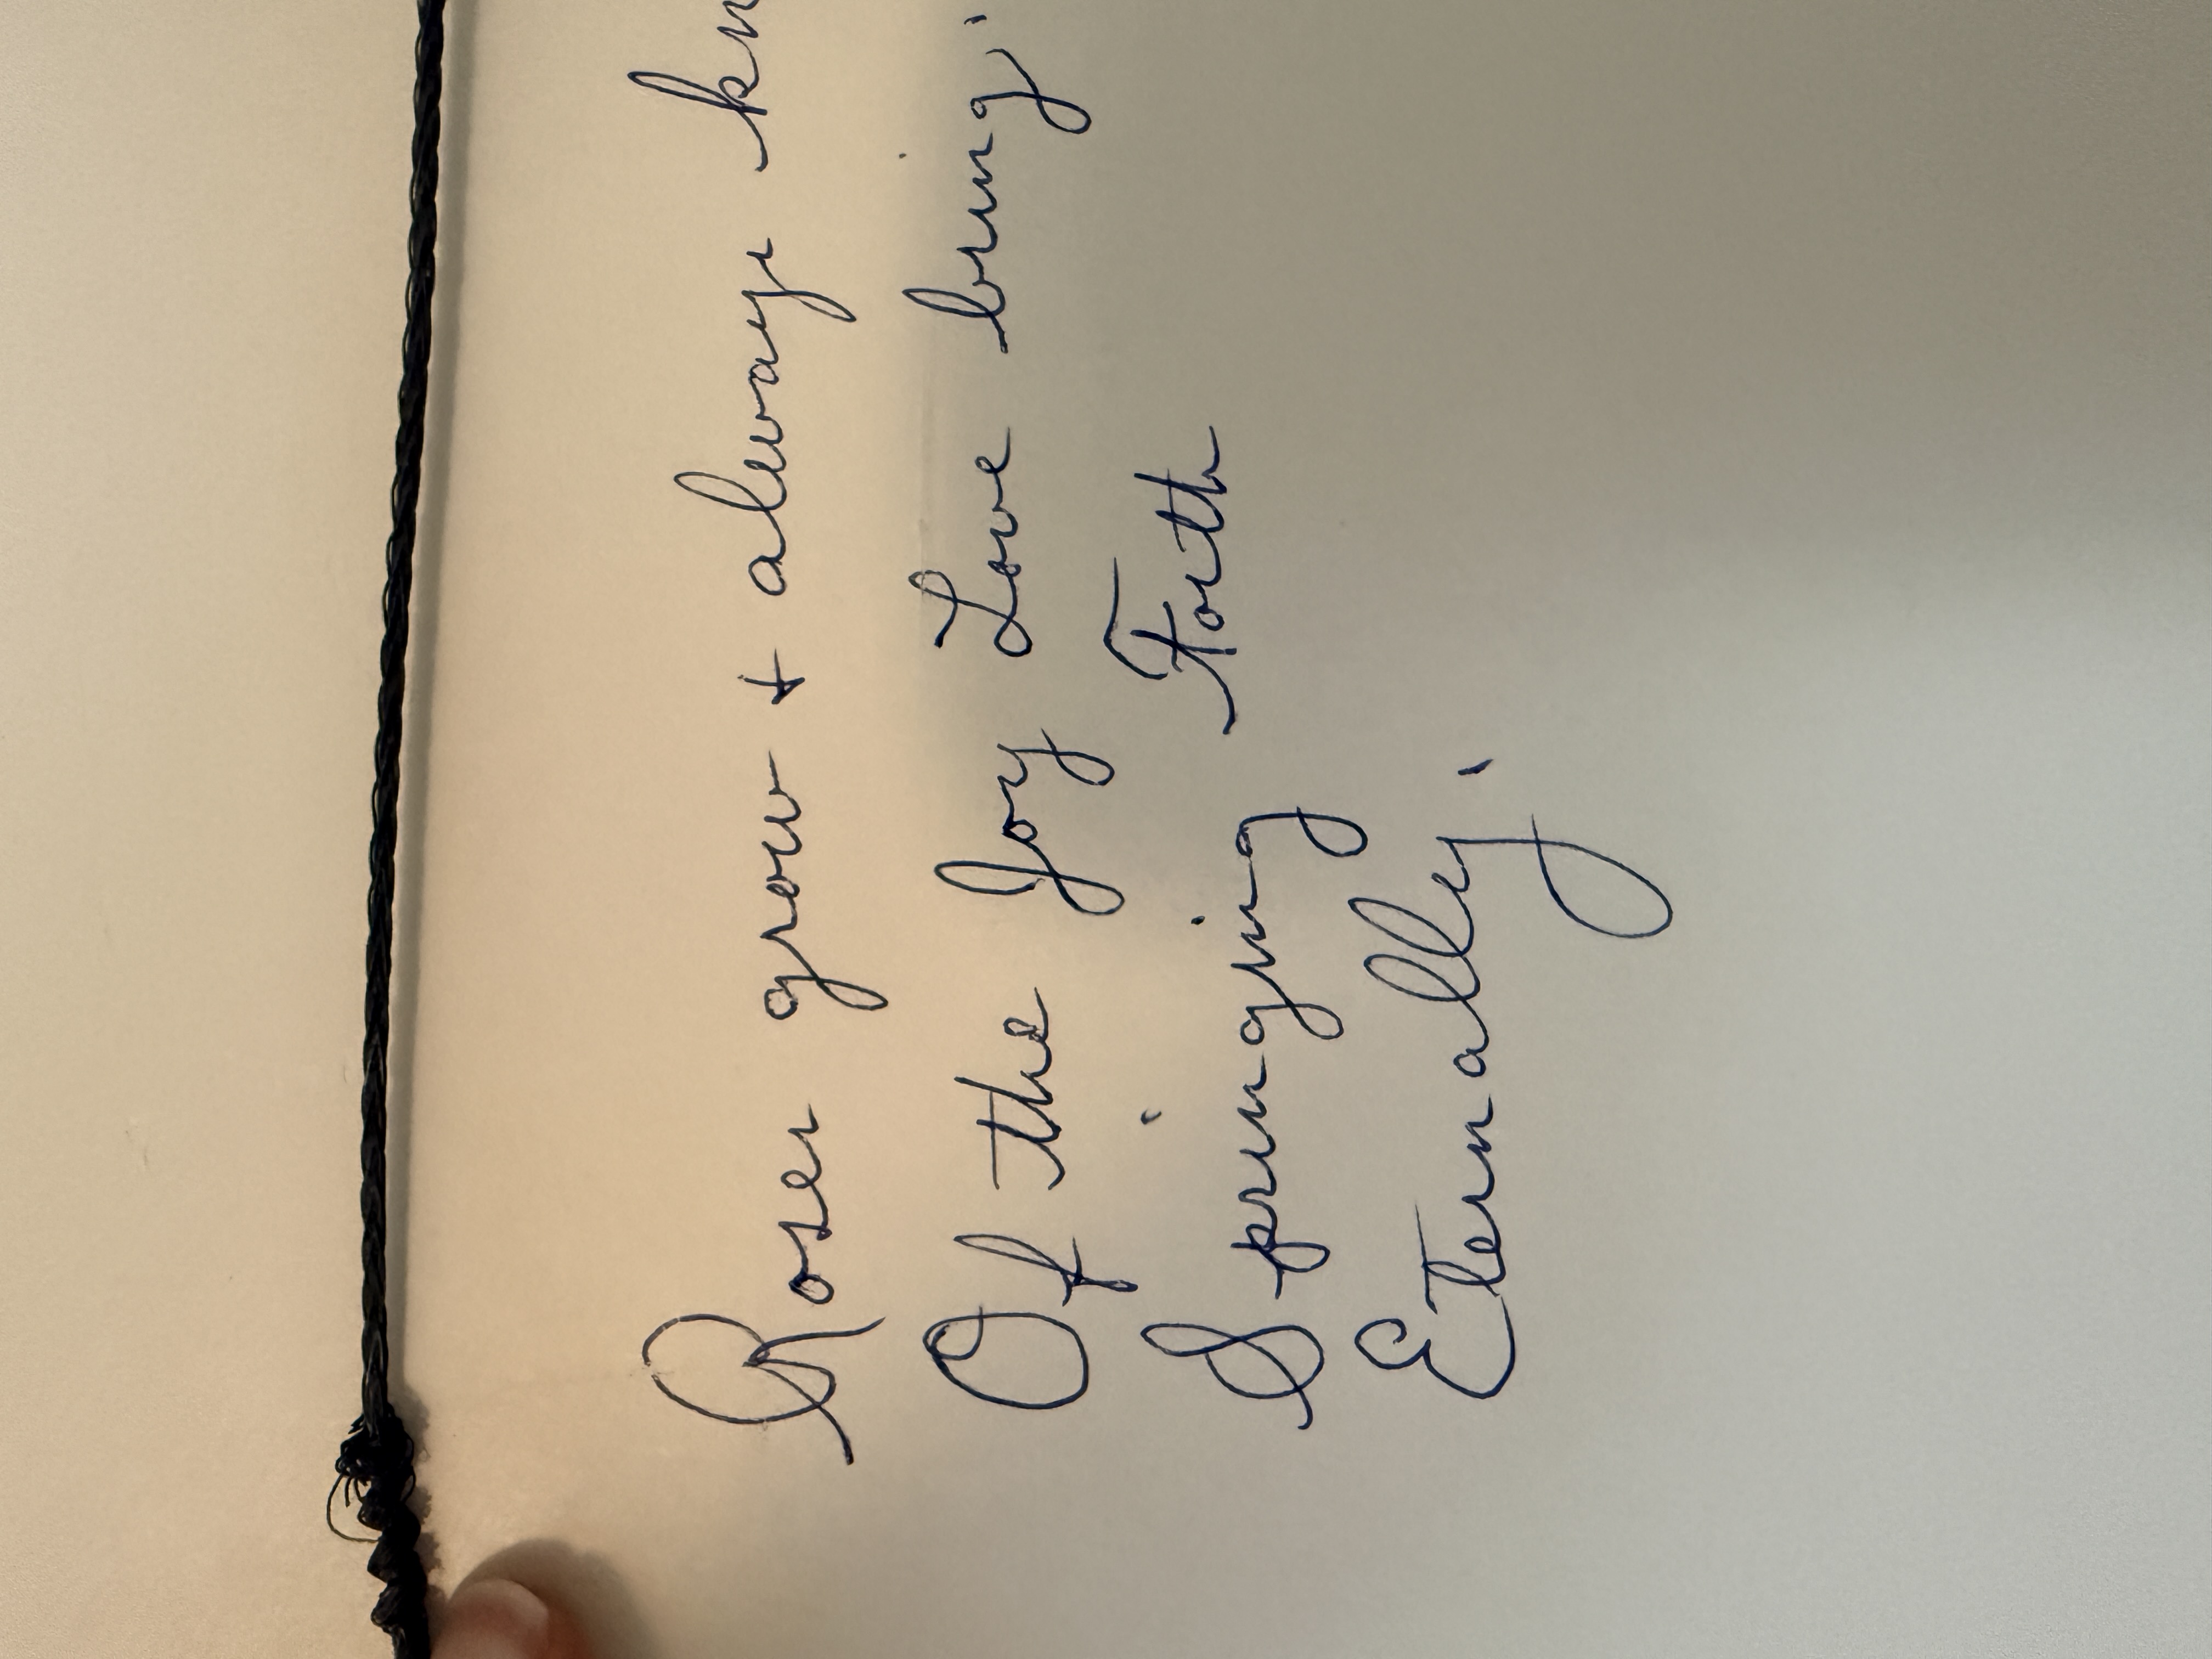 Roses grow + always
Of the Joy Love bring.
Springing Forth
Eternally.